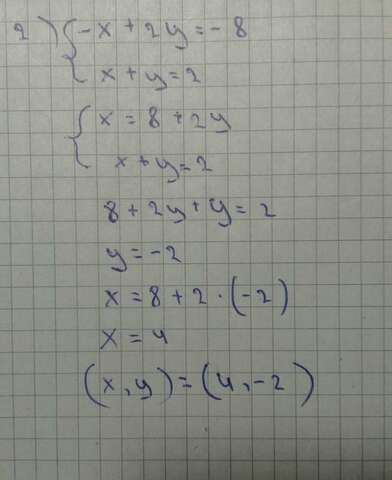 2) { -x + 2y = -8
{ x + y = 2
{ x = 8 + 2y
{ x + y = 2
8 + 2y + y = 2
y = -2
x = 8 + 2 · (-2)
x = 4
(x, y) = (4, -2)